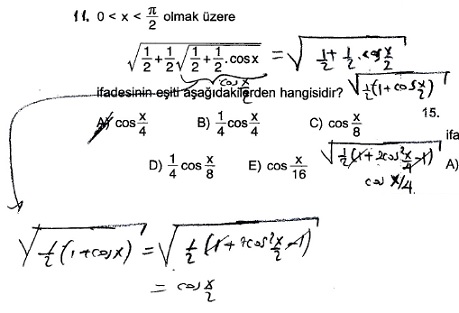 11. 0 < x < π/2 olmak üzere
√(1/2 + 1/2 √(1/2 + 1/2 . cosx)) = √(1/2 + 1/2 . cos x/2)
cos x/2
ifadesinin eşiti aşağıdakilerden hangisidir? √(1/2 (1 + cos x/2))
15.
A) cos x/4 B) 1/4 cos x/4 C) cos x/8
ifa
D) 1/4 cos x/8 E) cos x/16 √(1/2 (1 + 2cos² x/4 - 1)) A)
cos x/4
√(1/2 (1 + cosx)) = √(1/2 (1 + 2cos² x/2 - 1))
= cos x/2